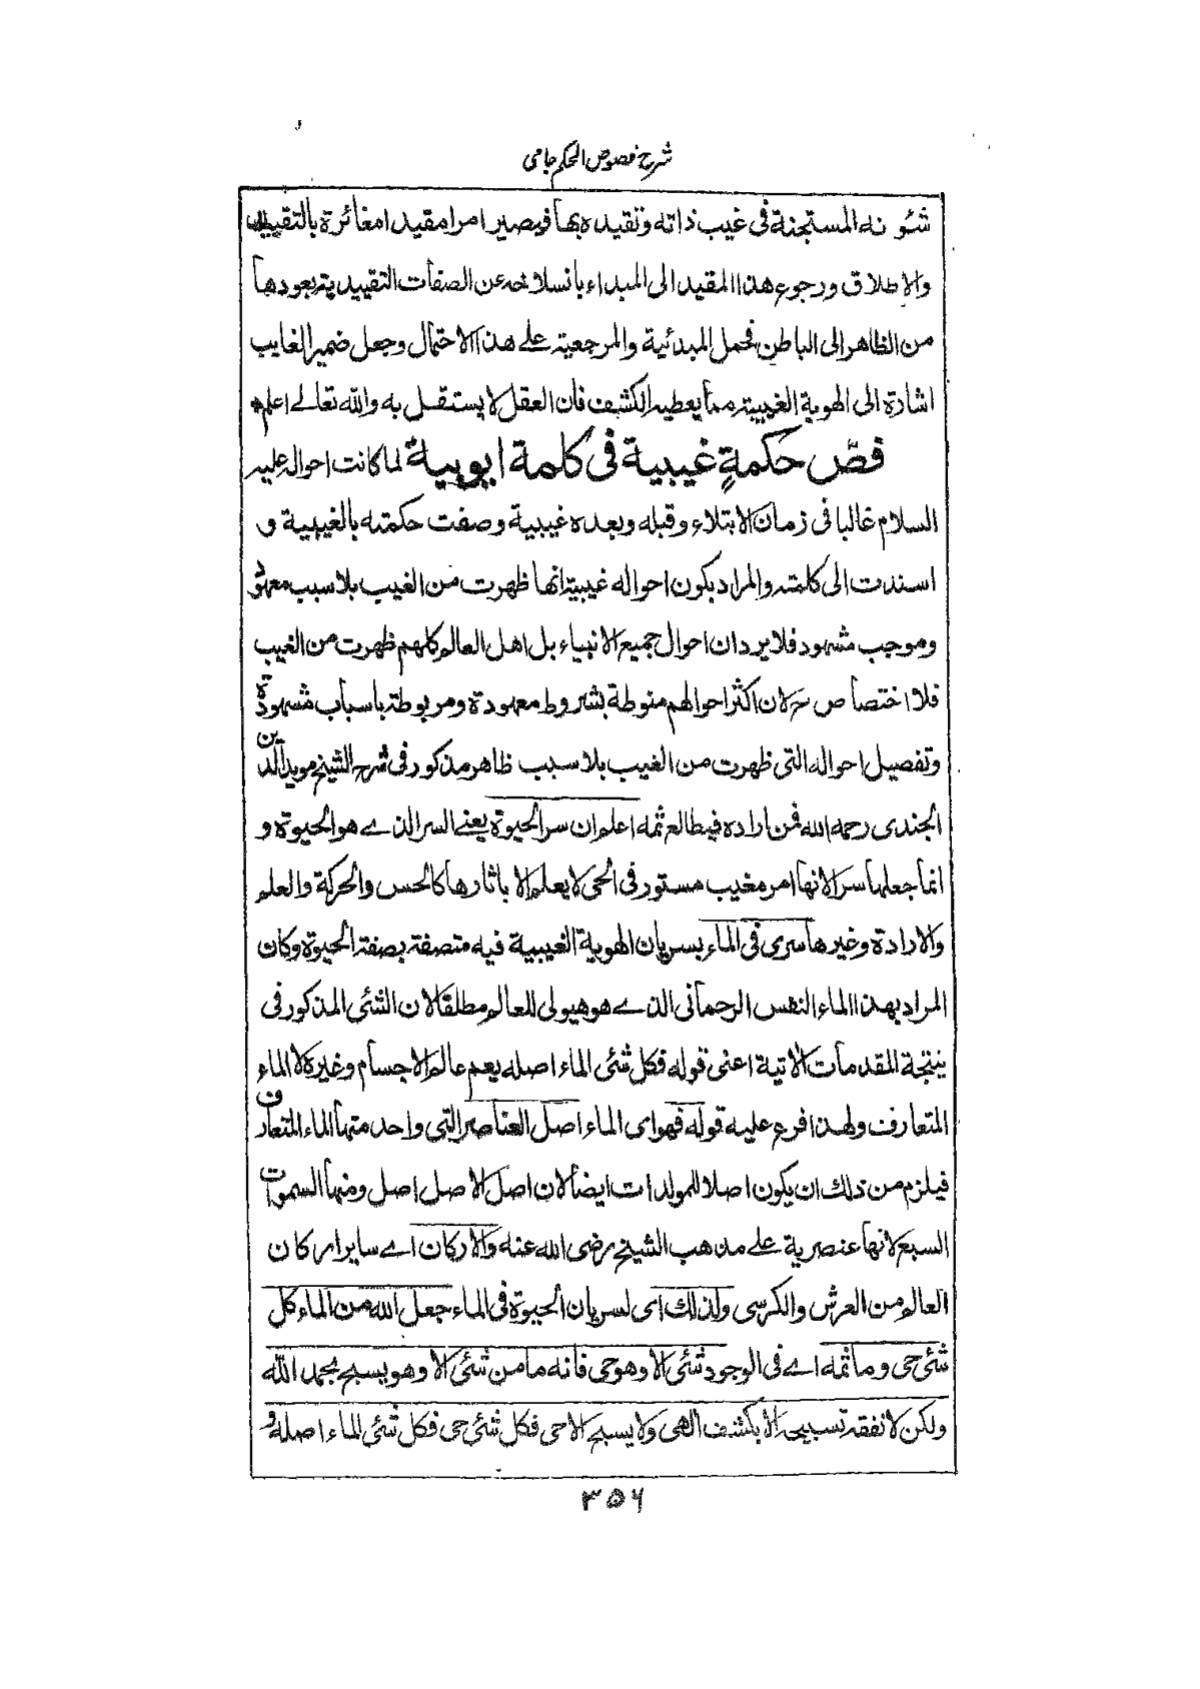 شرح فصوص الحكم جامی
شئونه المستجنة فى غيب ذاته وتقيده بها فيصير امرا مقيدا مغائرة بالتقييد
والاطلاق ورجوع هذا المقيد الى المبداء بانسلاخه عن الصفات التقييدية بعودها
من الظاهر الى الباطن فحمل المبدئية والمرجعية على هذا الاحتمال وجعل ضمير الغايب
اشارة الى الهوية الغيبية مما يعطيه الكشف فان العقل لا يستقل به والله تعالے اعلم
فصّ حكمةٍ غيبية فى كلمة ايوبية لما كانت احواله عليه
السلام غالبا فى زمان الابتلاء وقبله وبعده غيبية وصفت حكمته بالغيبية و
اسندت الى كلمته والمراد بكون احواله غيبية انها ظهرت من الغيب بلا سبب معهود
وموجب مشهود فلا يرد ان احوال جميع الانبياء بل اهل العالم كلهم ظهرت من الغيب
فلا اختصاص ح لان اكثر احوالهم منوطة بشروط معهودة ومربوطة باسباب مشهودة
وتفصيل احواله التى ظهرت من الغيب بلا سبب ظاهر مذكور فى شرح الشيخ مويد الدين
الجندى رحمه الله فمن اراده فيطالع ثمه اعلم ان سر الحيوة يعنے السر الذے هو الحيوة و
انما جعلها سرا لانها امر مغيب مستور فى الحى لا يعلم الا باثارها كالحس والحركة والعلم
والارادة وغيرها سرى فى الماء بسريان الهوية الغيبية فيه متصفة بصفة الحيوة وكان
المراد بهذا الماء النفس الرحمانى الذے هو هيولى للعالم مطلقا لان الشئى المذكور فى
نتيجة المقدمات الاتية اعنى قوله فكل شئى الماء اصله يعم عالم الاجسام وغيره لا الماء
المتعارف ولهذا فرع عليه قوله فهو اى الماء اصل العناصر التى واحد منها الماء المتعارف
فيلزم من ذلك ان يكون اصلا للمولدات ايضا لان اصل الاصل اصل ومنها السموات
السبع لانها عنصرية على مذهب الشيخ رضى الله عنه والاركان اے ساير اركان
العالم من العرش والكرسى ولذلك اى لسريان الحيوة فى الماء جعل الله من الماء كل
شئى حى وما ثمه اے فى الوجود شئى الا وهو حى فانه ما من شئى الا وهو يسبح بحمد الله
ولكن لا نفقه تسبيحه الا بكشف الهى ولا يسبح الا حى فكل شئى حى فكل شئى الماء اصله و
۳۵۶